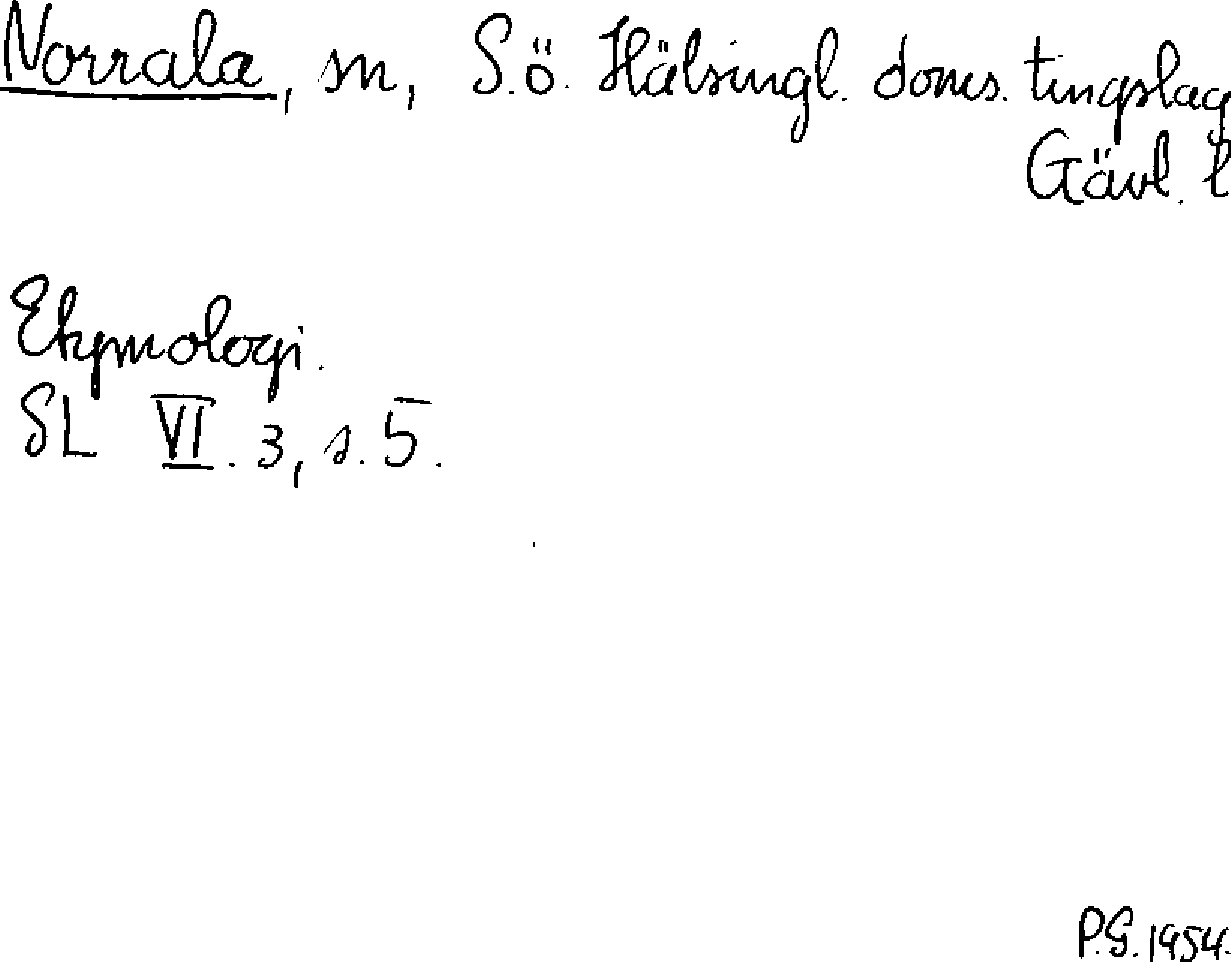 Norrala, sn, S.ö. Hälsingl. doms. tingslag
Gävl. l
Etymologi.
SL VI. 3, s. 5.
P.G. 1954.